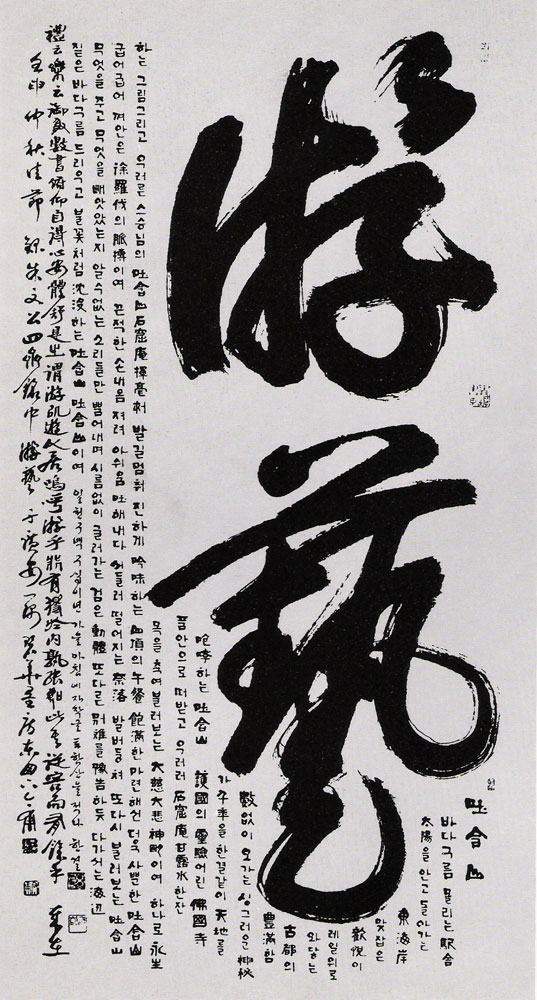 游藝
吐含山
바다구름 몰리는 駅舍
太陽을 안고 돌아가는
東海岸
맞잡은
歡悅이
레일위로
와닿는
古都의
豊滿함
數없이 오가는 싱그러운 神秘
한결같이 天地를
하는 吐含山 護國의 靈驗어린 佛國寺
품안으로 떠받고 우러러 石窟庵 甘露水 한잔
목을 축여 불러보는 大慈大悲 이여 하나로 永生
하는 그림그리고 우러른 스승님의 吐含山石窟庵揮毫처 발길멈춰 진하게 吟味하는 山頂의 午餐 飽滿한 마련해선 더욱 사뿐한 吐含山
굽어굽어 껴안은 徐羅伐의 脈搏이여 끈적한 손내음 져려 아쉬움 吐해내다 떨어지는 奈落 발버둥쳐 또다시 불러보는 吐含山
무엇을 주고 무엇을 빼앗았는지 알수없는 소리들만 뿜어내며 시름없이 굴러가는 검은 動體 또다른 別離를 豫告하듯 다가서는 海辺
짙은 바다구름 드리우고 불꽃처럼 沈沒하는 吐含山 吐含山이여 일천구백구십이년 가을아침에 자작글 토함산을 적다 한얼
禮云樂云御射數書俯仰自得心安體舒是之謂游以遊以居嗚呼游乎非有獨於內孰能如此其從容而有餘乎
壬申仲秋佳節 錄朱文公四齋銘中 游藝